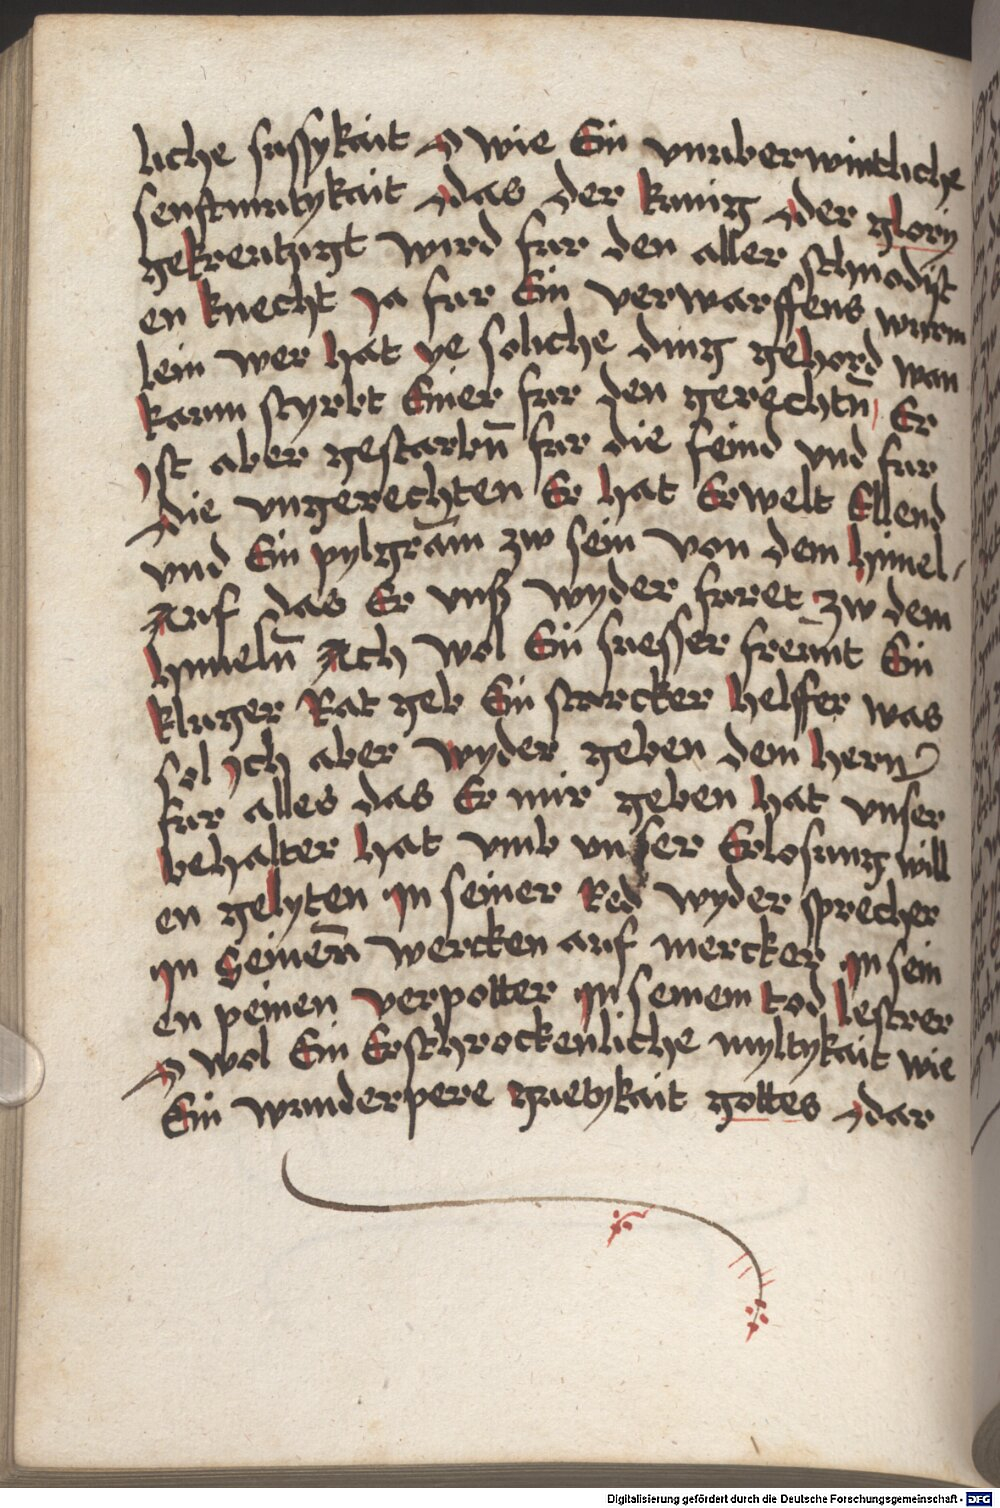 liche sussykait O wie Ein vnuberwintliche
senftmutykait das der kunig der glory
gekreutzigt wird fur den aller schnodist
en knecht Ja fur Ein verwarffens wurm
lein wer hat ye soliche ding gehord wan
kaum styrbt Einer fur den gerechtn̄ Er
Jst aber gestarbn̄ fur die feind vnd fur
die vngerechten Er hat Erwelt Ellend
vnd Ein pylgrām zw sein von dem himel
Auf das Er vnß wyder furet zw dem
himeln̄ Ach wol Ein suesser freunt Ein
kluger Rat geb Ein starcker helffer was
sol Jch aber wyder geben dem hern
fur alles das Er mir geben hat vnser
behalter hat vmb vnser Erlosung will
en gelyten Jn seiner Red wyder sprecher
Jn Seinen̄ wercken auf mercker Jn sein
en peinen verpotter Jn seinem tod lestrer
O wol Ein Erschrockenliche myltykait wie
Ein wunderpere guetykait gottes dar
Digitalisierung gefördert durch die Deutsche Forschungsgemeinschaft - DFG